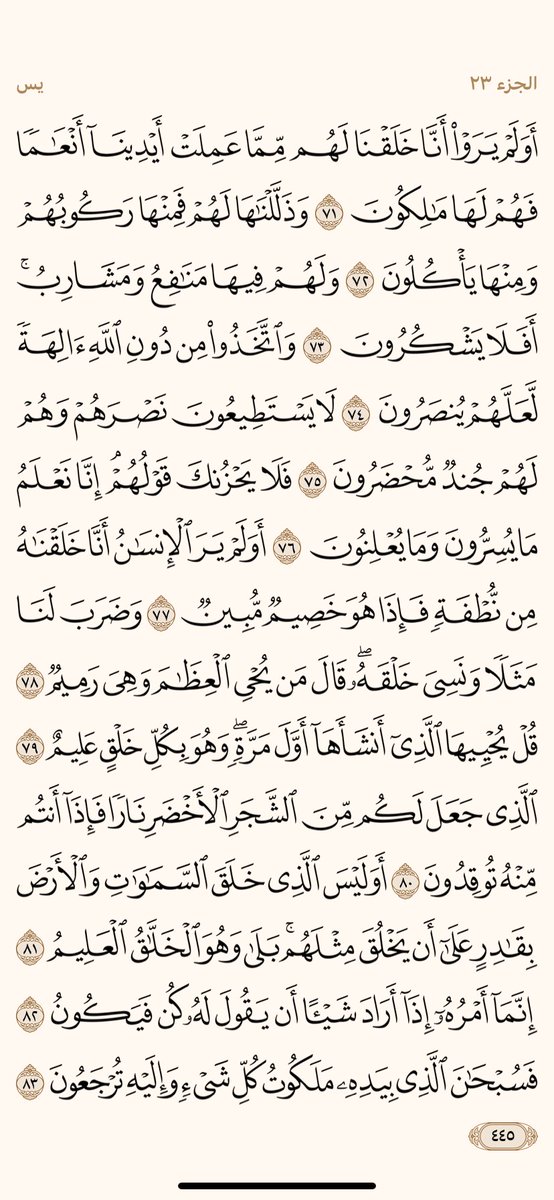 الجزء ٢٣
يس
أَوَلَمْ يَرَوْا۟ أَنَّا خَلَقْنَا لَهُم مِّمَّا عَمِلَتْ أَيْدِينَآ أَنْعَـٰمًا
فَهُمْ لَهَا مَـٰلِكُونَ ٧١ وَذَلَّلْنَـٰهَا لَهُمْ فَمِنْهَا رَكُوبُهُمْ
وَمِنْهَا يَأْكُلُونَ ٧٢ وَلَهُمْ فِيهَا مَنَـٰفِعُ وَمَشَارِبُ ۚ
أَفَلَا يَشْكُرُونَ ٧٣ وَٱتَّخَذُوا۟ مِن دُونِ ٱللَّهِ ءَالِهَةً
لَّعَلَّهُمْ يُنصَرُونَ ٧٤ لَا يَسْتَطِيعُونَ نَصْرَهُمْ وَهُمْ
لَهُمْ جُندٌ مُّحْضَرُونَ ٧٥ فَلَا يَحْزُنكَ قَوْلُهُمْ ۘ إِنَّا نَعْلَمُ
مَا يُسِرُّونَ وَمَا يُعْلِنُونَ ٧٦ أَوَلَمْ يَرَ ٱلْإِنسَـٰنُ أَنَّا خَلَقْنَـٰهُ
مِن نُّطْفَةٍ فَإِذَا هُوَ خَصِيمٌ مُّبِينٌ ٧٧ وَضَرَبَ لَنَا
مَثَلًا وَنَسِىَ خَلْقَهُۥ ۖ قَالَ مَن يُحْىِ ٱلْعِظَـٰمَ وَهِىَ رَمِيمٌ ٧٨
قُلْ يُحْيِيهَا ٱلَّذِىٓ أَنشَأَهَآ أَوَّلَ مَرَّةٍ ۖ وَهُوَ بِكُلِّ خَلْقٍ عَلِيمٌ ٧٩
ٱلَّذِى جَعَلَ لَكُم مِّنَ ٱلشَّجَرِ ٱلْأَخْضَرِ نَارًا فَإِذَآ أَنتُم
مِّنْهُ تُوقِدُونَ ٨٠ أَوَلَيْسَ ٱلَّذِى خَلَقَ ٱلسَّمَـٰوَٰتِ وَٱلْأَرْضَ
بِقَـٰدِرٍ عَلَىٰٓ أَن يَخْلُقَ مِثْلَهُم ۚ بَلَىٰ وَهُوَ ٱلْخَلَّـٰقُ ٱلْعَلِيمُ ٨١
إِنَّمَآ أَمْرُهُۥٓ إِذَآ أَرَادَ شَيْـًٔا أَن يَقُولَ لَهُۥ كُن فَيَكُونُ ٨٢
فَسُبْحَـٰنَ ٱلَّذِى بِيَدِهِۦ مَلَكُوتُ كُلِّ شَىْءٍ وَإِلَيْهِ تُرْجَعُونَ ٨٣
٤٤٥